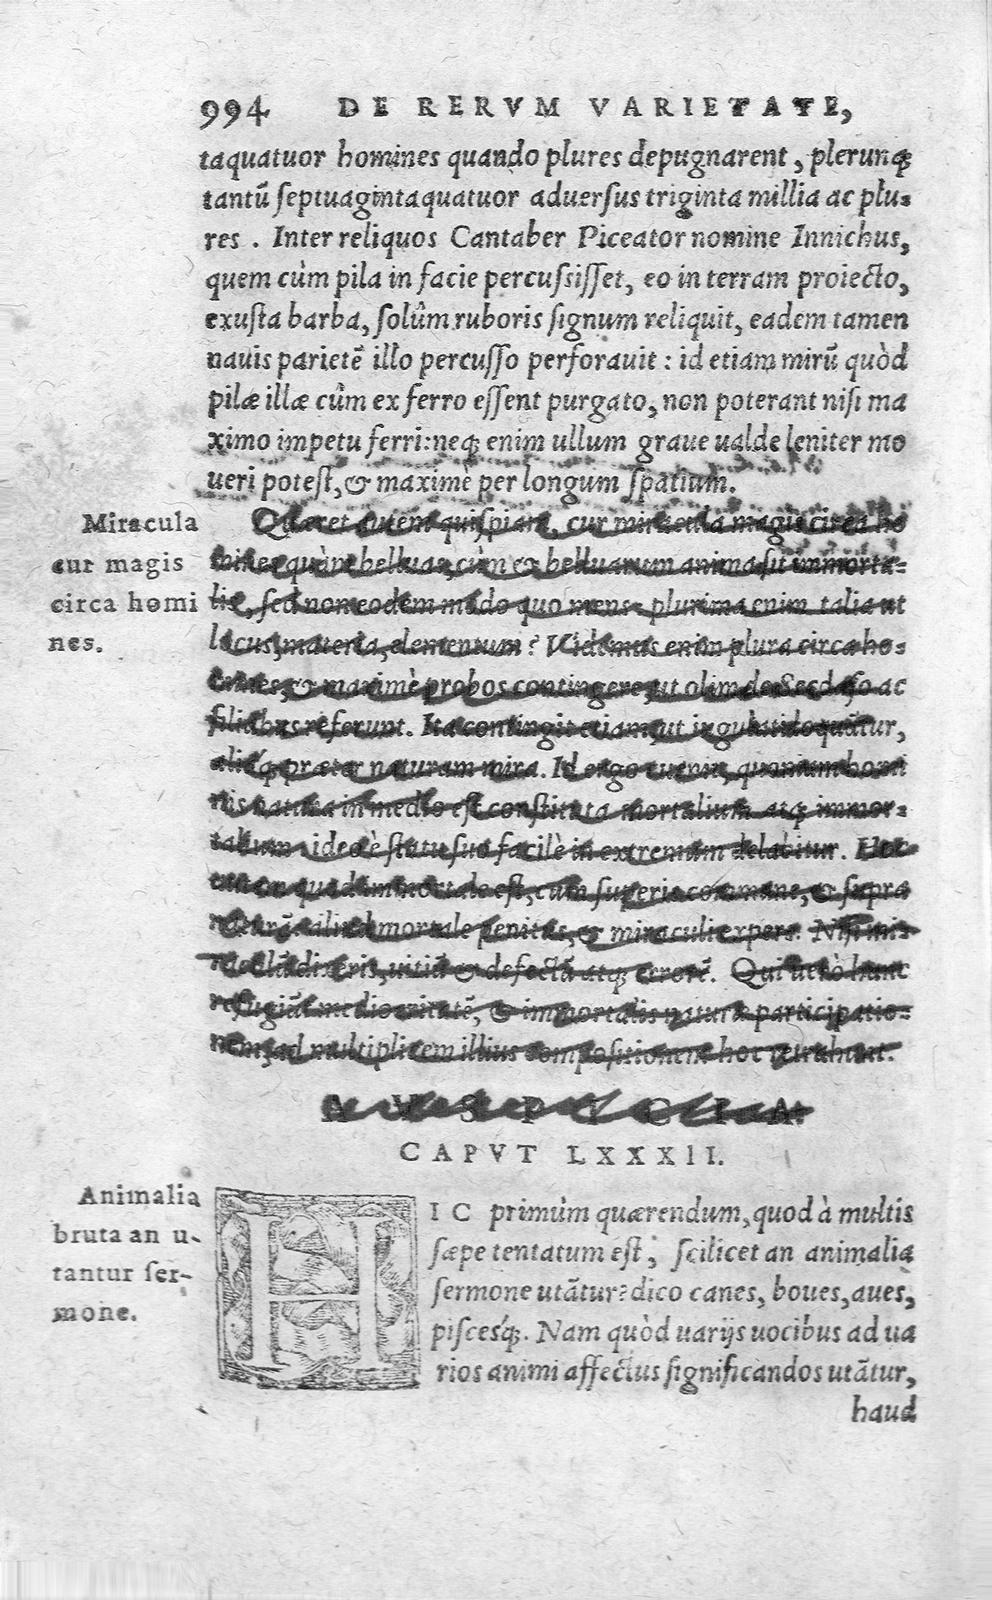 994 DE RERVM VARIETATE,
taquatuor homines quando plures depugnarent, plerunq;
tantū septuagintaquatuor aduersus triginta millia ac plu-
res. Inter reliquos Cantaber Piceator nomine Innichus,
quem cùm pila in facie percussisset, eo in terram proiecto,
exusta barba, solûm ruboris signum reliquit, eadem tamen
nauis parietē illo percusso perforauit: id etiam mirū quòd
pilæ illæ cûm ex ferro essent purgato, non poterant nisi ma
ximo impetu ferri: neq; enim ullum graue ualde leniter mo
ueri potest, & maximè per longum spatium.
Miracula
cur magis
circa homi
nes.
Quæret autem quispiam, cur miracula magis circa ho
mines quàm belluas, cùm & belluarum anima sit immorta-
lis, sed non eodem modo quo mens: plurima enim talia ut
locus, materia, elementum? Videmus enim plura circa ho-
mines, & maximè probos contingere, ut olim de ac
filiabus referunt. Ita contingit etiam, ut
aliaq; præter naturam mira. Id ergo euenit, quoniam homi
nis natura in medio est constituta mortalium atq; immor-
talium, ideo è statu suo facilè in extremum delabitur. Hoc
autem quod immortale est, cum superis commune, & supra
naturā: aliud mortale penitus, & miraculi expers. Nisi
dixeris, uitiū & defectū atq; errorē. Qui uerò hanc
refugiūt mediocritatē, & immortalis naturæ participatio-
nem, ad multiplicem illius compositionem hoc retrahunt.
AVSPICIA.
CAPVT LXXXII.
Animalia
bruta an u-
tantur ser-
mone.
HIC primùm quærendum, quod à multis
sæpe tentatum est, scilicet an animalia
sermone utātur: dico canes, boues, aues,
piscesq;. Nam quòd uarijs uocibus ad ua
rios animi affectus significandos utātur,
haud